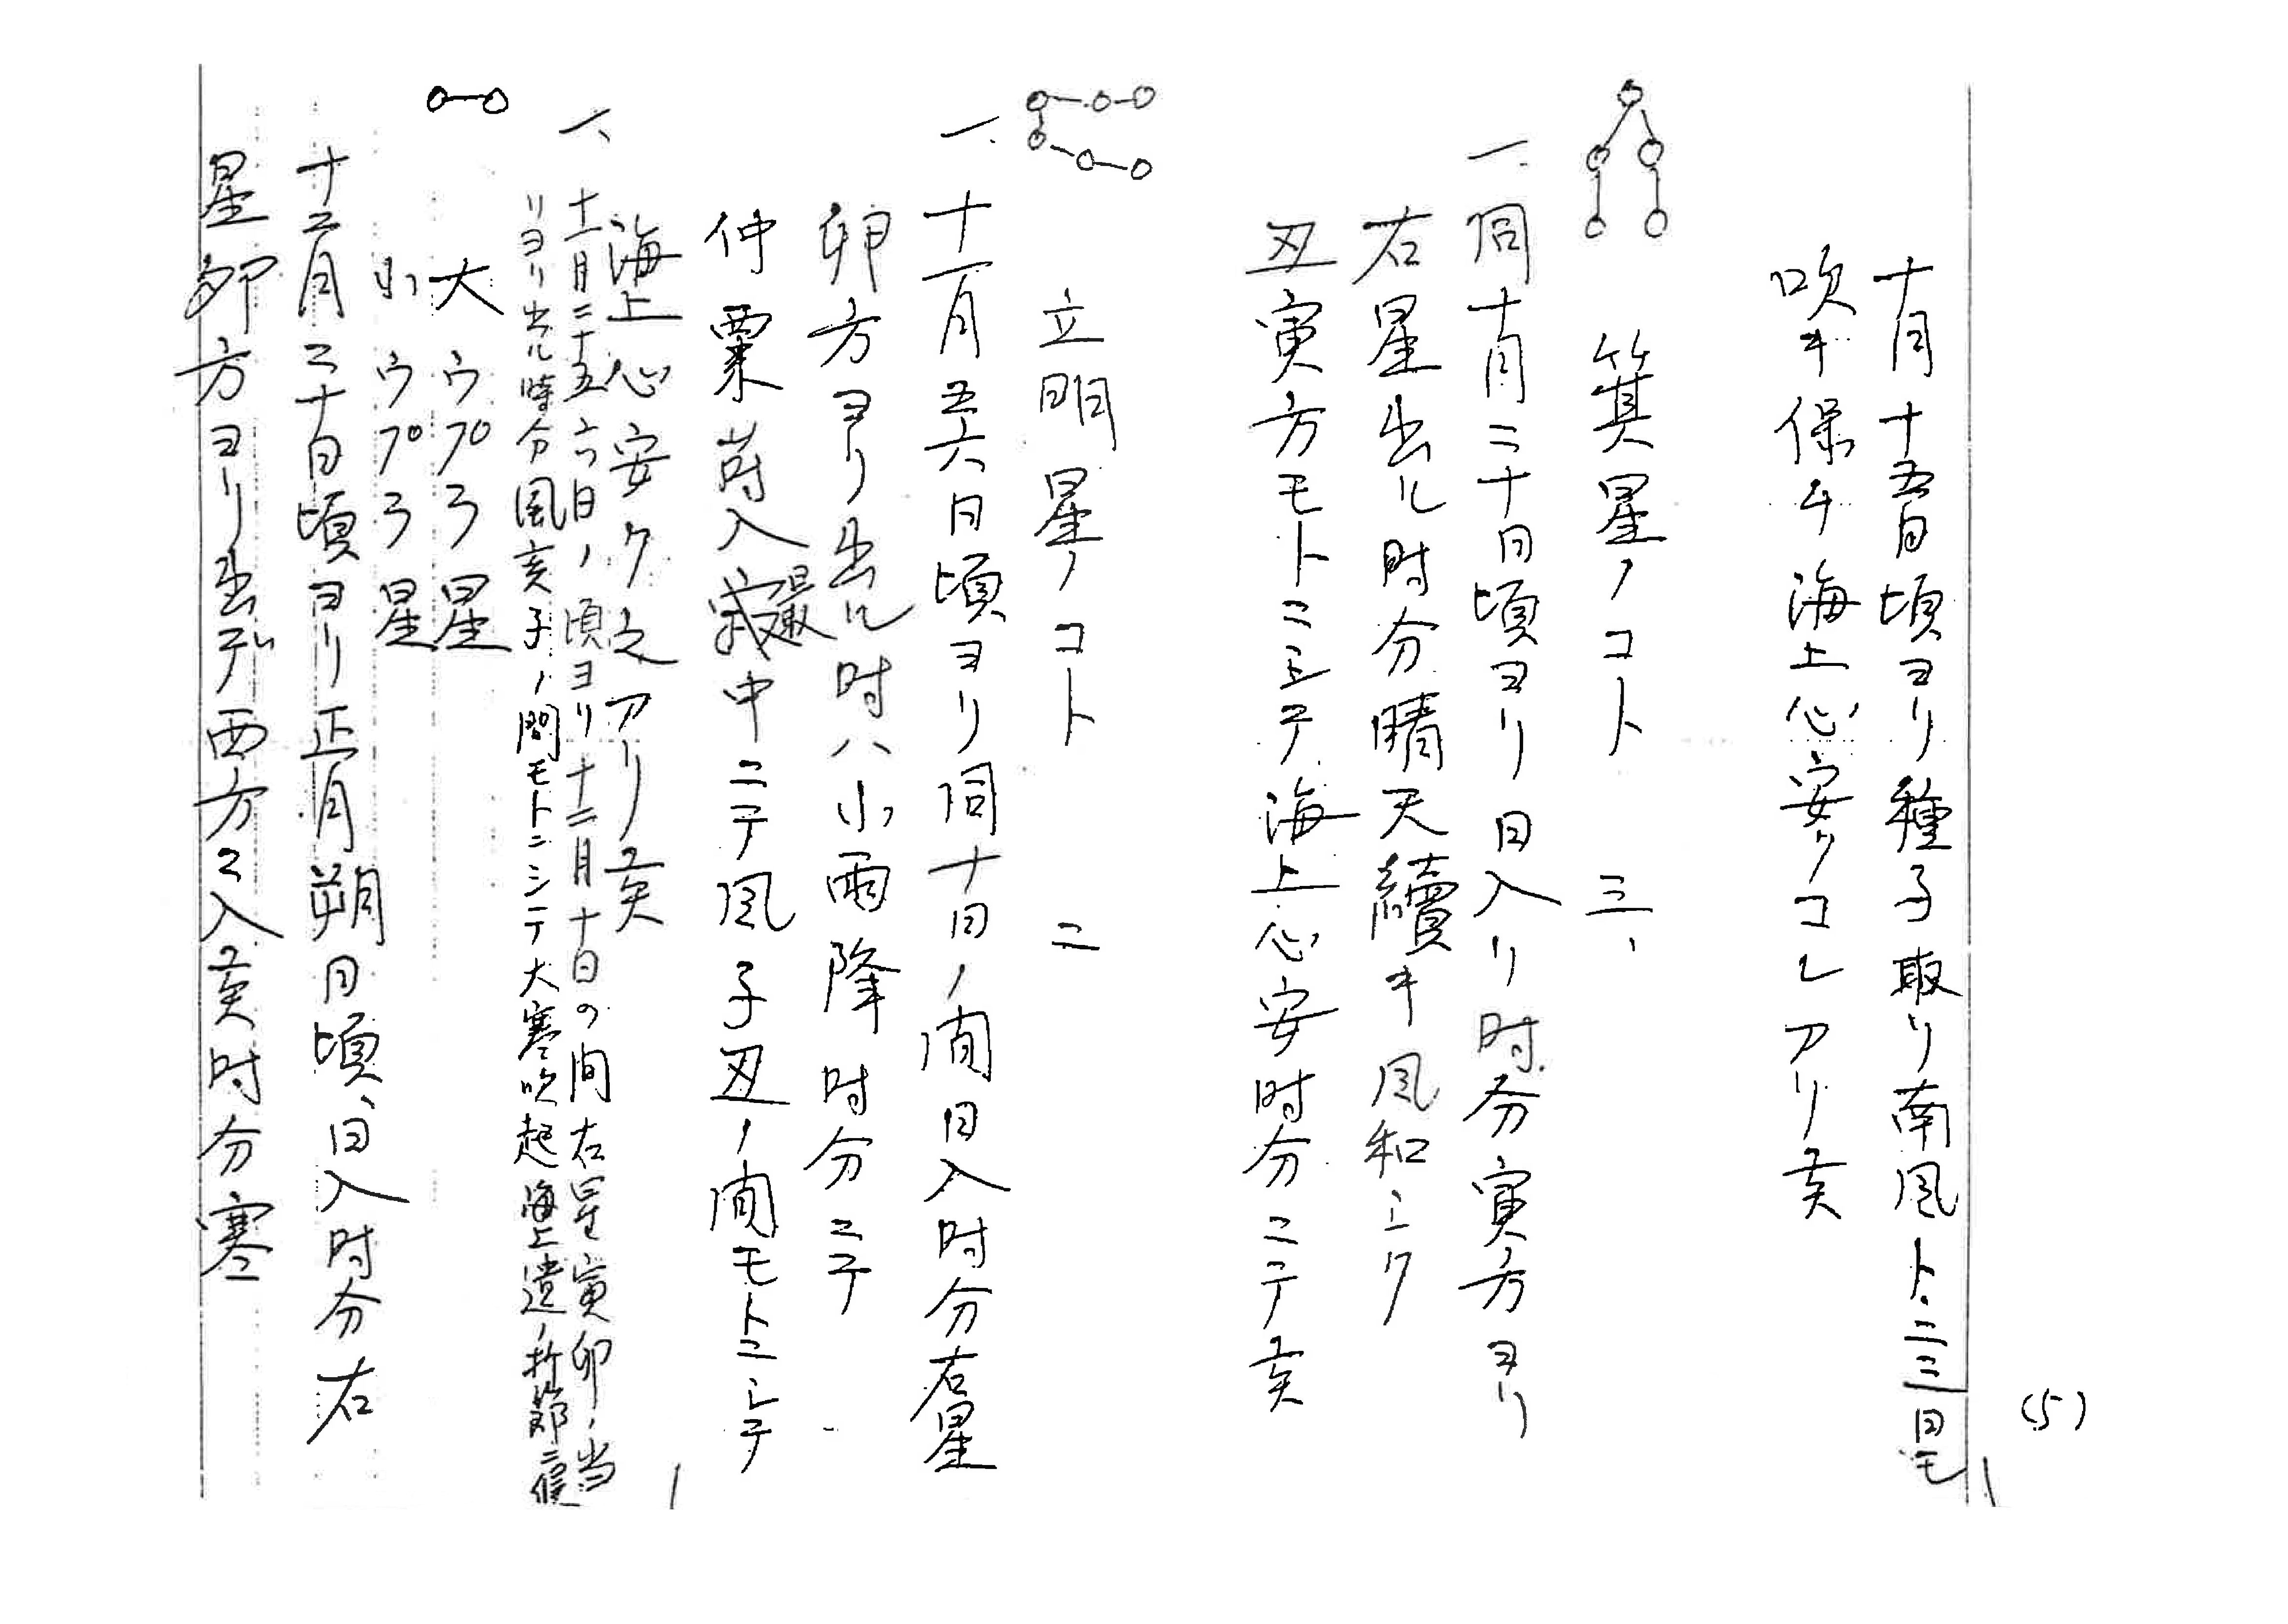 (5)
十月十五日頃ヨリ種子取リ南風ト二三日モ
吹キ保チ海上心安クコレアリ亥
箕星ノコト 三、
一、同十月二十日頃ヨリ日入リ时分寅方ヨリ
右星出ル时分晴天續キ風和シク
丑寅方モトニシテ海上心安时分ニテ亥
立明星ノコト 二
一、十一月五六日頃ヨリ同十日ノ間日入时分右星
卯方ヨリ出ル时ハ小雨降时分ニテ
仲粟时入最中ニテ風子丑ノ間モトニシテ
海上心安ク之アリ亥
一、十一月二十五六日ノ頃ヨリ十二月十日の間右星寅卯ノ当
リヨリ出ル時分風亥子ノ間モトニシテ大寒吹起海上遠ノ折節ニ候
大ウプろ星
小ウプろ星
十二月二十日頃ヨリ正月朔日頃、日入时分右
星卯方ヨリ出デ西方ニ入亥时分寒